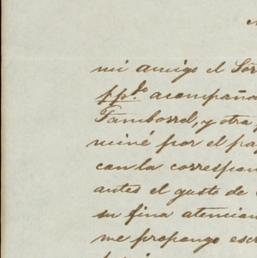 mi amigo el Sór
pp.do acompaña
Tamborrel, y otra
niné por el pa
con la correspon
antes el gusto de
su fina atencion
me propongo esc